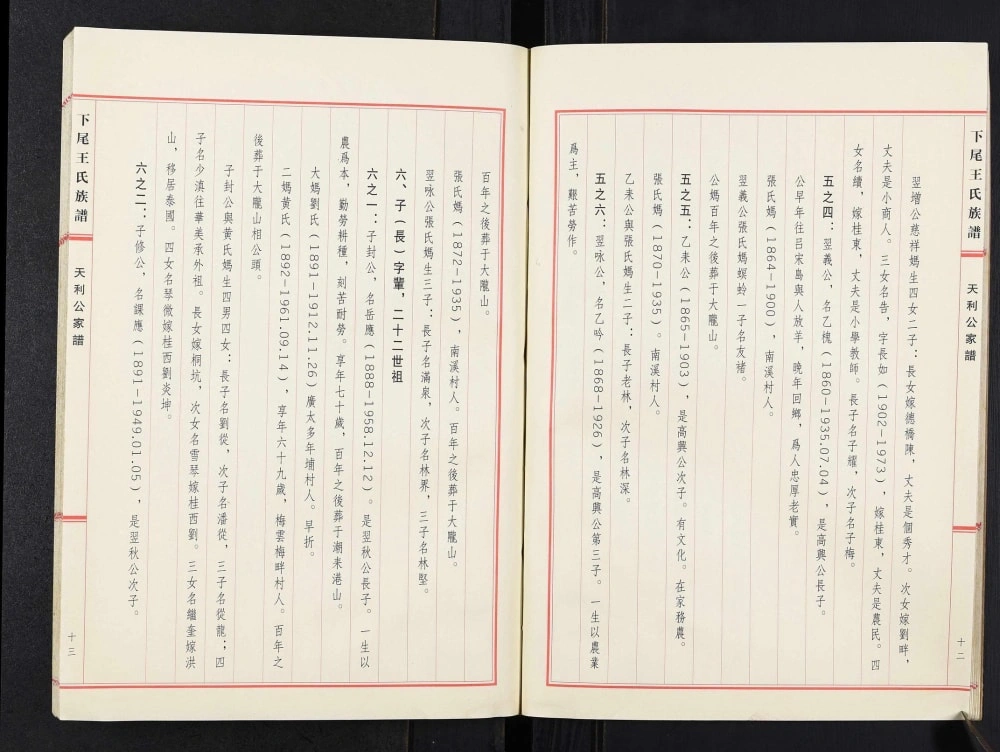 下尾王氏族譜
天利公家譜
十二
翌增公慈祥媽生四女二子：長女嫁德橋陳，丈夫是個秀才。次女嫁劉畔，
丈夫是小商人。三女名告，字長如（1902－1973），嫁桂東，丈夫是農民。四
女名續，嫁桂東，丈夫是小學教師。長子名子耀，次子名子梅。
五之四：翌義公，名乙槐（1860－1935.07.04），是高興公長子。
公早年往呂宋島與人放羊，晚年回鄉，爲人忠厚老實。
張氏媽（1864－1900），南溪村人。
翌義公張氏媽螟蛉一子名友褚。
公媽百年之後葬于大隴山。
五之五：乙耒公（1865－1903），是高興公次子。有文化。在家務農。
張氏媽（1870－1935）。南溪村人。
乙耒公與張氏媽生二子：長子老林，次子名林深。
五之六：翌咏公，名乙吟（1868－1926），是高興公第三子。一生以農業
爲主，艱苦勞作。
百年之後葬于大隴山。
張氏媽（1872－1935），南溪村人。百年之後葬于大隴山。
翌咏公張氏媽生三子：長子名滿泉，次子名林界，三子名林堅。
六、子（長）字輩，二十二世祖
六之一：子封公，名岳應（1888－1958.12.12）。是翌秋公長子。一生以
農爲本，勤勞耕種，刻苦耐勞。享年七十歲，百年之後葬于潮耒港山。
大媽劉氏（1891－1912.11.26）廣太多年埔村人。早折。
二媽黄氏（1892－1961.09.14），享年六十九歲，梅雲梅畔村人。百年之
後葬于大隴山相公頭。
子封公與黄氏媽生四男四女：長子名劉從，次子名潘從，三子名從龍；四
子名少滇往華美承外祖。長女嫁桐坑，次女名雪琴嫁桂西劉。三女名繼奎嫁洪
山，移居泰國。四女名琴微嫁桂西劉炎坤。
六之二：子修公，名課應（1891－1949.01.05），是翌秋公次子。
下尾王氏族譜
天利公家譜
十三